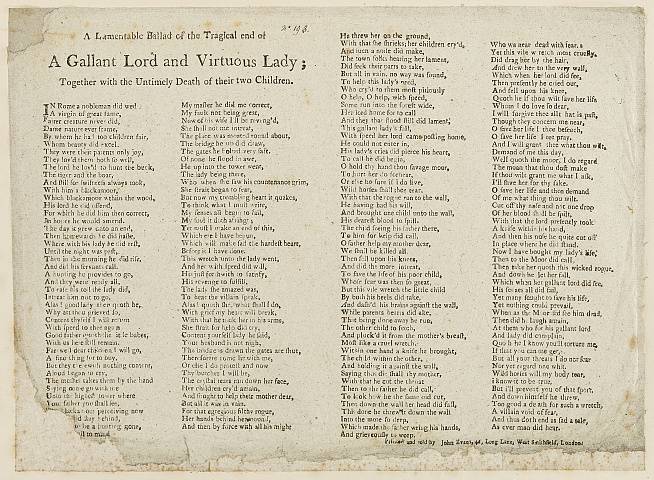 A Lamentable Ballad of the Tragical end of
A Gallant Lord and Virtuous Lady;
Together with the Untimely Death of their two Children.
IN Rome a nobleman did wed
A virgin of great fame,
Fairer creature never did,
Dame nature ever frame,
By whom he had two children fair,
Whom beauty did excel,
They were their parents only joy,
They lov'd them both so well,
The lord he lov'd to hunt the buck,
The tiger and the boar,
And still for swiftness always took,
With him a blackamoor,
Which blackamoor within the wood,
His lord he did offend,
For which he did him then correct,
In hopes he would amend.
The day it grew unto an end,
Then homewards he did haste,
Where with his lady he did rest,
Until the night was past,
Then in the morning he did rise,
And did his servants call.
A hunting he provides to go,
And they were ready all,
To cause the toil the lady did,
Intreat him not to go,
Alas! good lady then quoth he,
Why art thou grieved so,
Content thyself I will return
With speed to thee again
Good father quoth the little babes,
With us here still remain.
Farewel dear children I will go,
A fine thing for to buy,
But they therewith nothing content,
Aloud began to cry,
The mother takes them by the hand
Saying come go with me
Unto the highest tower where
Your father you shall see,
blackamoor perceiving now
be a hunting gone,
My master he did me correct,
My fault not being great,
Now of his wife I'll be reveng'd,
She shall not me intreat,
The place was moated round about,
The bridge he up did draw,
The gates he bolted very fast,
Of none he stood in awe,
He up into the tower went,
The lady being there,
Who when she saw his countenance grim,
She strait began to fear,
But now my trembling heart it quakes,
To think what I must write,
My senses all begin to fail,
My soul it doth affright;
Yet must I make an end of this,
Which here I have begun,
Which will make sad the hardest heart,
Before I have done.
This wretch unto the lady went,
And her with speed did will,
His lust forthwith to satisfy,
His revenge to fulfill,
The lady she amazed was,
To hear the villain speak,
Alas! quoth she, what shall I do,
With grief my heart will break,
With that he took her in his arms,
She strait for help did cry,
Content yourself lady he said,
Your husband is not nigh,
The bridge is drawn the gates are shut,
Therefore come lie with me,
Or else I do protest and vow
Thy butcher I will be,
The crystal tears ran down her face,
Her children cry'd amain,
And sought to help their mother dear,
But all it was in vain.
For that egregious filthy rogue,
Her hands behind her bound,
And then by force with all his might
He threw her on the ground,
With that she shrieks; her children cry'd,
And such a noise did make,
The town folks hearing her lament,
Did seek their parts to take,
But all in vain, no way was found,
To help this lady's need,
Who cry'd to them most piteously
O help, O help, with speed,
Some run into the forest wide,
Her lord home for to call
And they that stood still did lament,
This gallant lady's fall,
With speed her lord came posting home,
He could not enter in,
His lady's cries did pierce his heart,
To call he did begin,
O hold thy hand thou savage moor,
To hurt her do forbear,
Or else be sure if I do live,
Wild horses shall thee tear,
With that the rogue ran to the wall,
He having had his will,
And brought one child unto the wall,
His dearest blood to spill,
The child seeing his father there,
To him for help did call,
O father help my mother dear,
We shall be killed all.
Then fell upon his knees,
And did the moor intreat,
To save the life of his poor child,
Whose fear was then so great,
But this vile wretch the little child
By both his heels did take,
And dash'd his brains against the wall,
While parents hearts did ake,
That being done away he run,
The other child to fetch,
And pluck'd it from the mother's breast,
Most like a cruel wretch.
Within one hand a knife he brought,
The child within the other,
And holding it against the wall,
Saying thus die shall thy mother,
With that he cut the throat
Then to the father he did call,
To look how he the same did cut,
Then down the wall her head did fall,
This done he threw it down the wall
Into the moat so deep,
Which made the father wring his hands,
And grievously to weep.
Who was near dead with fear,
Yet this vile wretch most cruelly,
Did drag her by the hair,
And drew her to the very wall,
Which when her lord did see,
Then presently he cried out,
And fell upon his knee,
Quoth he if thou wilt save her life
Whom I do love so dear,
I will forgive thee all that is past,
Though they concern me near,
O save her life I thee beseech,
O save her life I set pray,
And I will grant thee what thou wilt,
Demand of me this day,
Well quoth the moor, I do regard
The moan that thou dost make
If thou wilt grant me what I ask,
I'll save her for thy sake.
O save her life and then demand
Of me what thing thou wilt.
Cut off thy nose and not one drop
Of her blood shall be spilt,
With that the lord presently took
A knife within his hand,
And then his nose he quite cut off
In place where he did stand.
Now I have bought my lady's life,
Then to the Moor did call,
Then take her quoth this wicked rogue,
And down he let her fall,
Which when her gallant lord did see,
His senses all did fail,
Yet many sought to save his life,
Yet nothing could prevail,
When as the Moor did see him dead,
Then did he laugh amain,
At them who for his gallant lord
And lady did complain,
Quoth he I know you'll torture me,
If that you can me get,
But all your threats I do not fear
Nor yet regard one whit.
Wild horses will my body tear,
I know it to be true,
But I'll prevent you of that sport,
And down himself he threw,
Too good a death for such a wretch,
A villain void of fear,
And thus doth end as sad a tale,
As ever man did hear.
Printed and sold by John Evans, 42, Long Lane, West Smithfield, London: